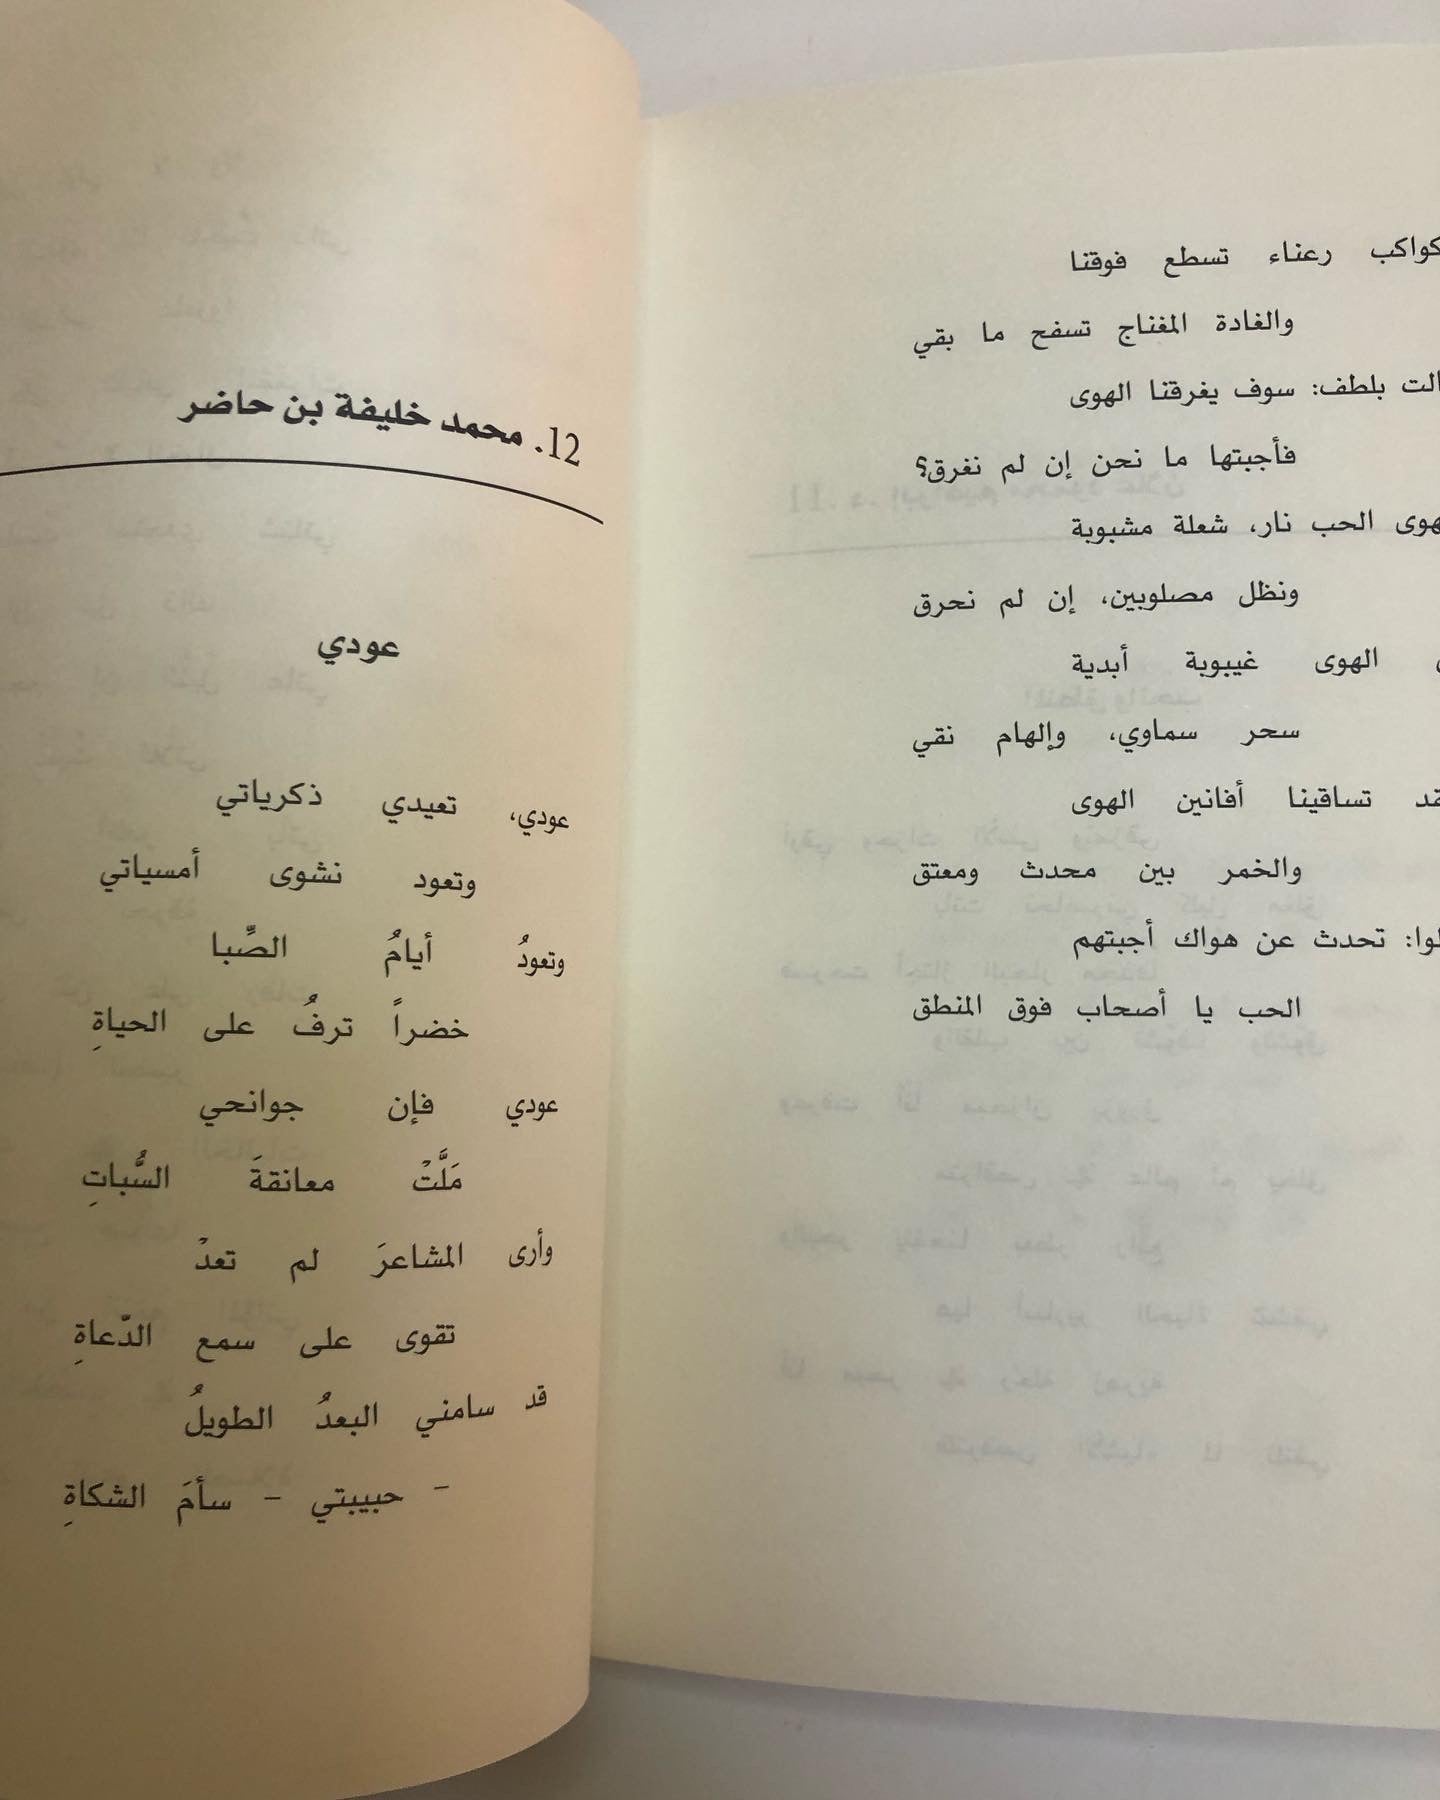 كواكب رعناء تسطع فوقنا
والغادة المغناج تسفح ما بقي
بلطف: سوف يغرقنا الهوى
فأجبتها ما نحن إن لم نغرق؟
الحب نار، شعلة مشبوبة
ونظل مصلوبين، إن لم نحرق
الهوى غيبوبة أبدية
سحر سماوي، وإلهام نقي
تساقينا أفانين الهوى
والخمر بين محدث ومعتق
تحدث عن هواك أجبتهم
الحب يا أصحاب فوق المنطق
12. محمد خليفة بن حاضر
عودي
عودي، تعيدي ذكرياتي
وتعود نشوى أمسياتي
وتعودُ أيامُ الصِّبا
خضراً ترفُ على الحياةِ
عودي فإن جوانحي
مَلَّتْ معانقةَ السُّباتِ
وأرى المشاعرَ لم تعدْ
تقوى على سمع الدّعاةِ
قد سامني البعدُ الطويلُ
- حبيبتي - سأمَ الشكاةِ